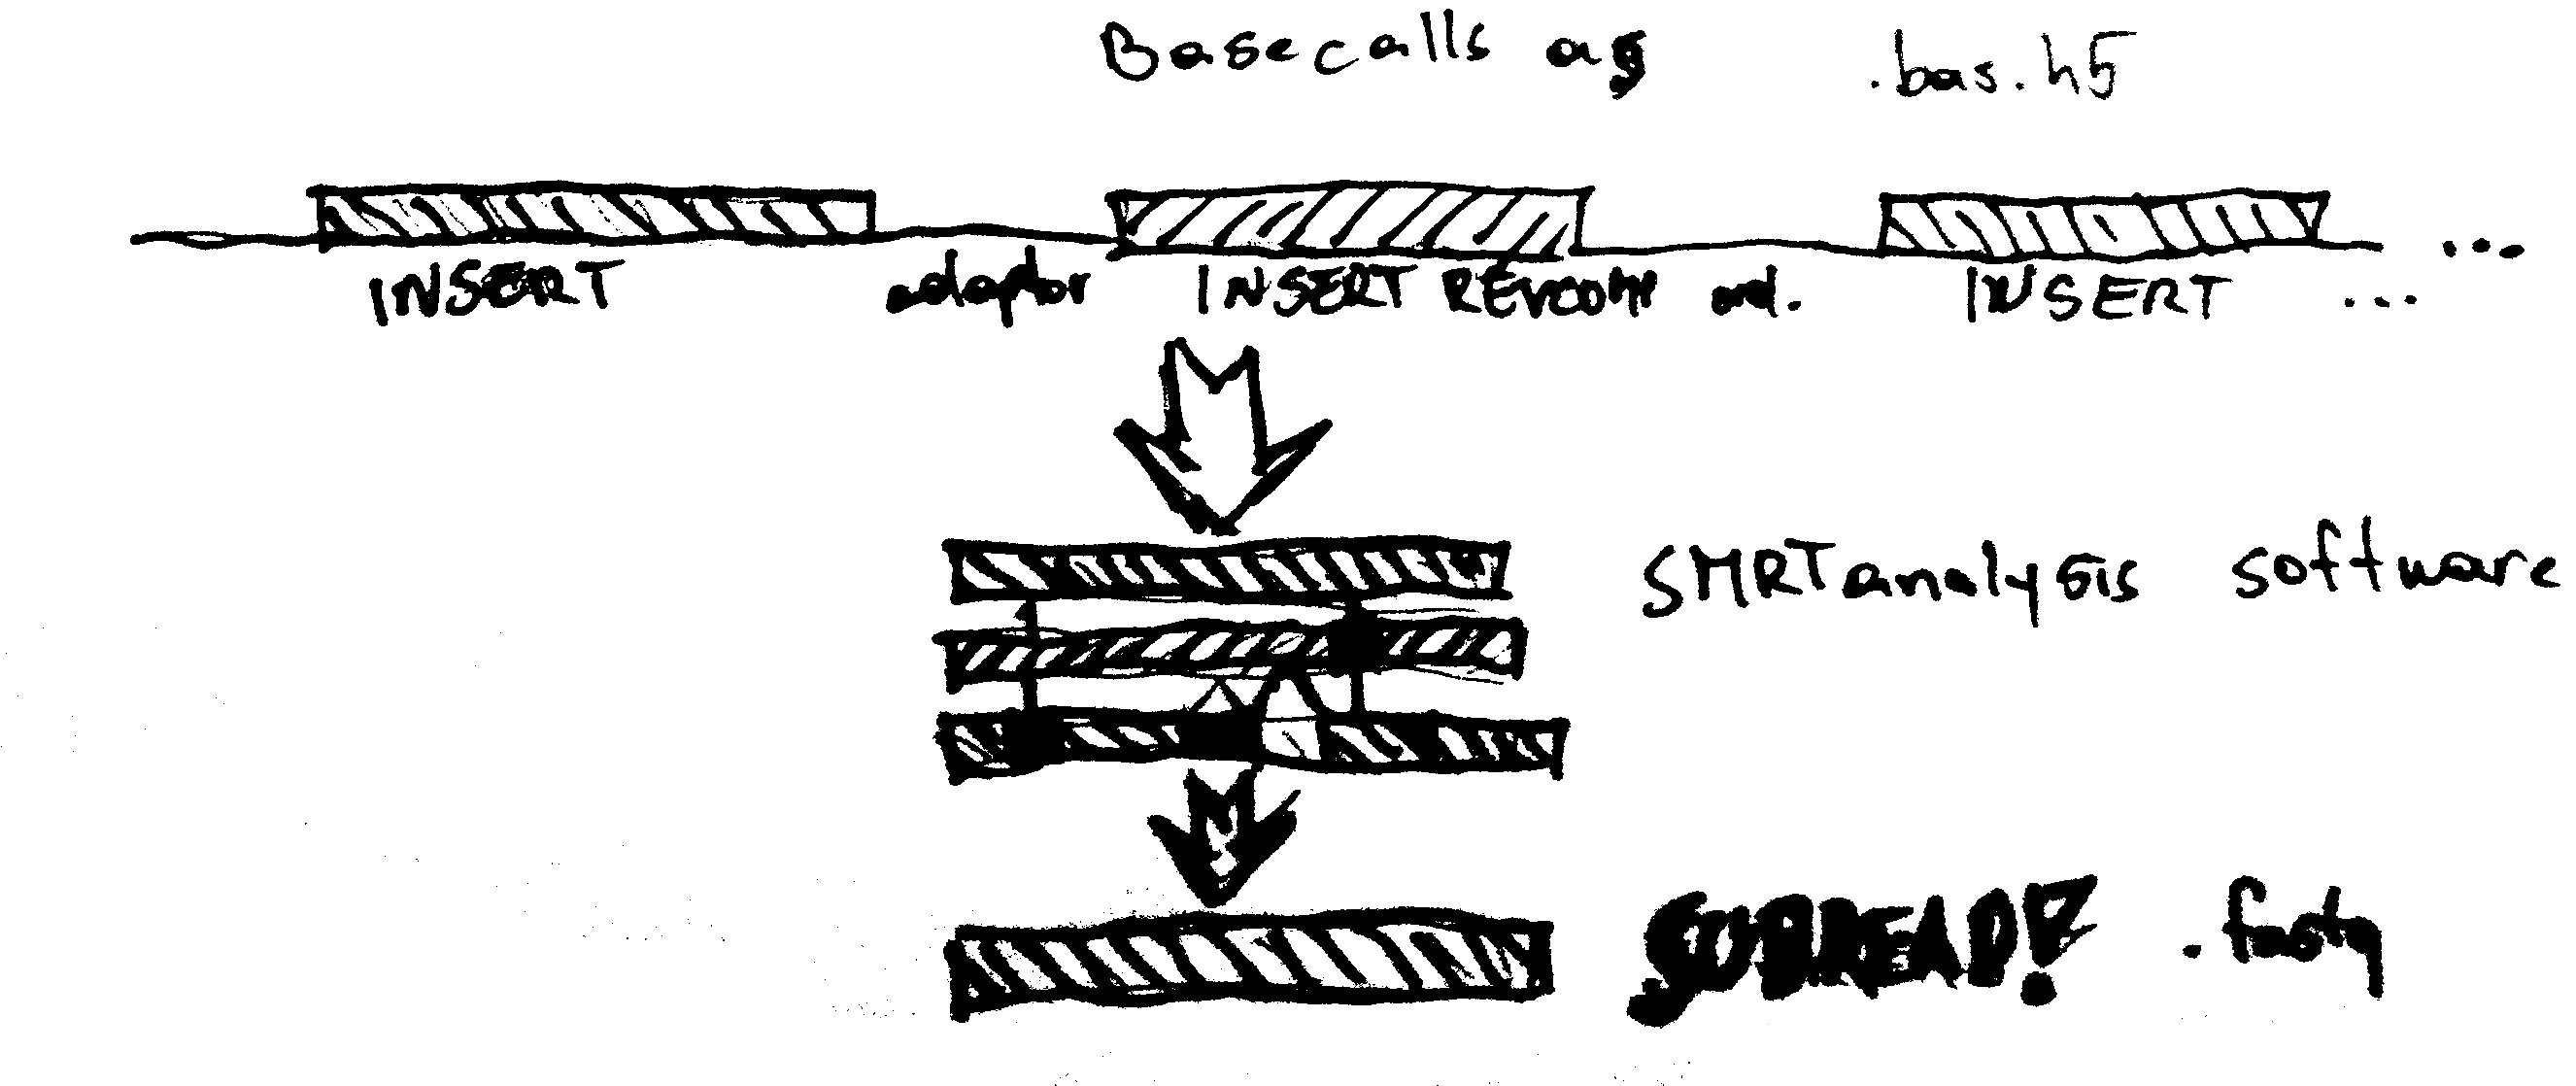 Basecalls as .bas.h5
INSERT adaptor INSERT REVCOMP ad. INSERT ...
SMRTanalysis software
SUBREAD! .fastq